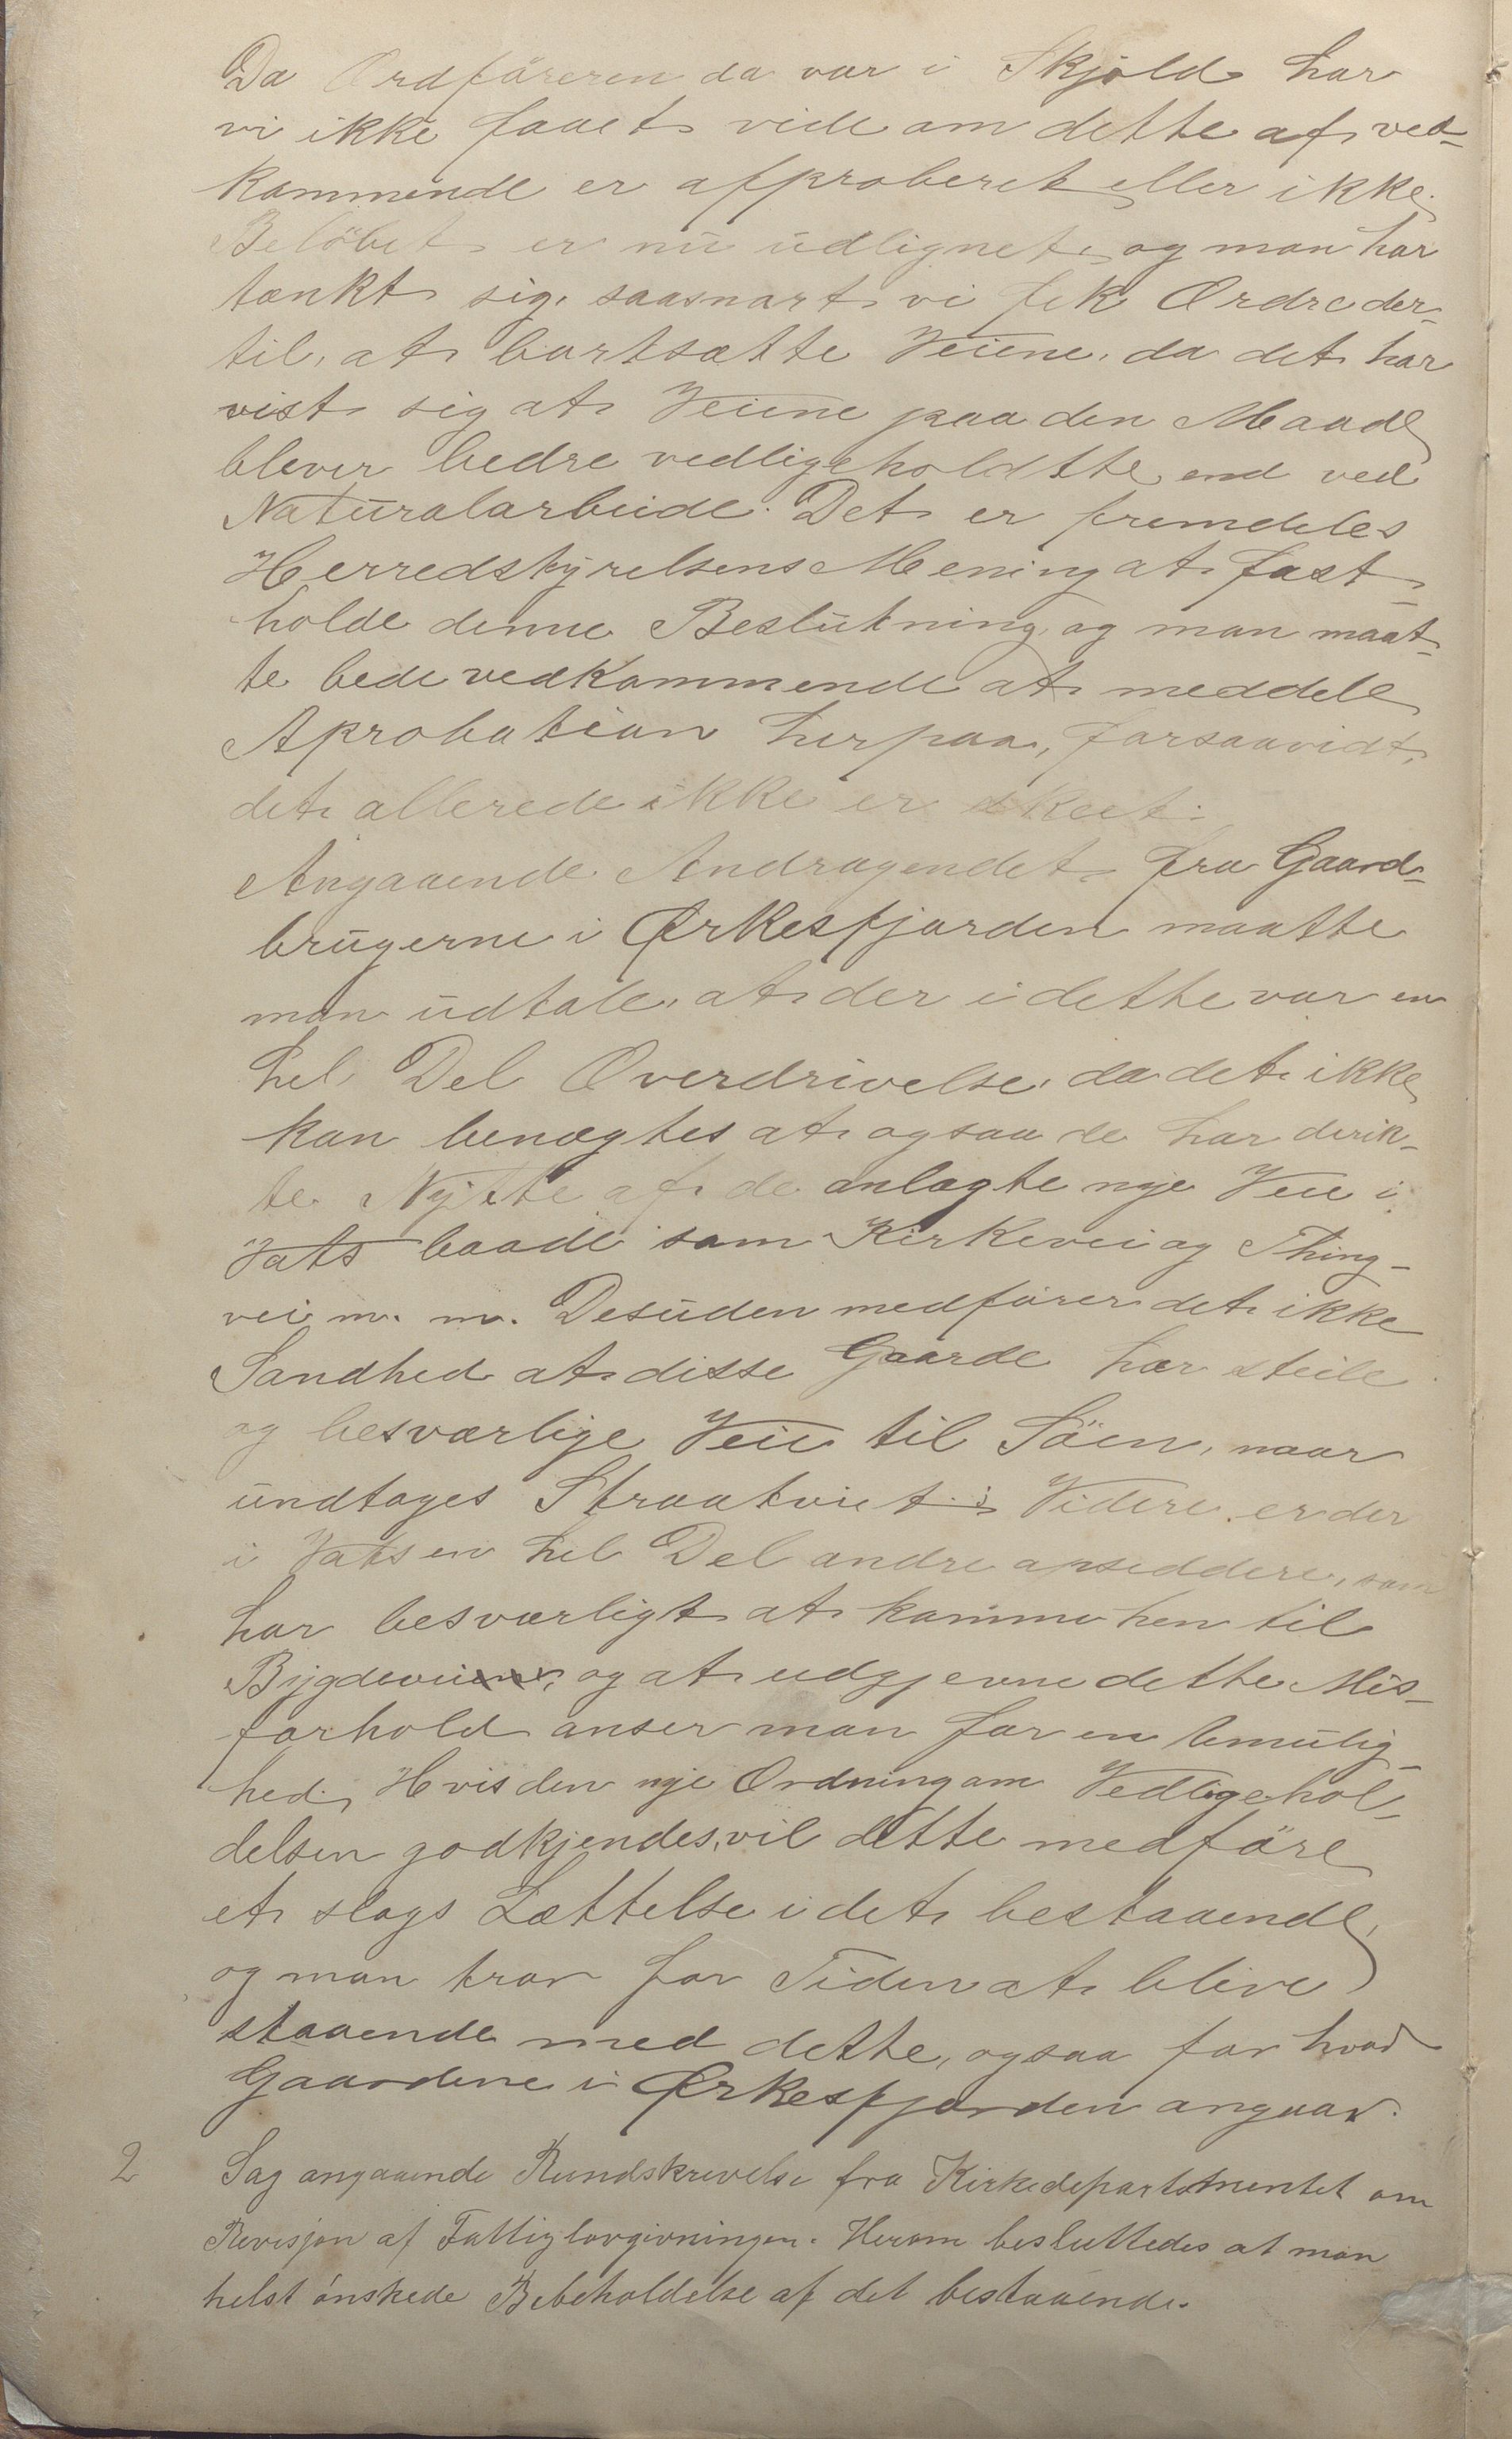 Da Ordföreren da var i Skjold har
vi ikke faaet vide om dette af ved-
kommende er afproberet eller ikke.
Belöbet er nu udlignet, og man har
tænkt sig, saasnart vi fik Ordre der-
til, at bortsætte Veiene, da det har
vist sig at Veiene paa den Maade
bliver bedre vedligeholdtte end ved
Naturalarbeide. Det er fremdeles
Herredstyrelsens Mening at fast-
holde denne Beslutning, og man maat-
te bede vedkommende at meddele
Aprobation herpaa, forsaavidt,
det allerede ikke er skeet.
Angaaende Andragendet fra Gaard-
brugerne i Ørkesfjorden maatte
man udtale, at der i dette var en
hel Del Overdrivelse, da det ikke
kan benægtes at ogsaa de har dirik-
te Nytte af de anlagte nye Veie i
Vats baade som Kirkevei og Thing-
vei m. m. Desuden medfører det ikke
Sandhed at disse Gaarde har steile
og besværlige Veie til Söen, naar
undtages Straatveit. Videre er der
i Vats en hel Del andre opsiddere, som
har besværligt at komme hen til
Bygdeveiene, og at udgjevne dette Mis-
forhold anser man for en Umulig-
hed. Hvis den nye Ordning om Vedligehol-
delsen godkjendes, vil dette medföre
et slags Lættelse i det bestaaende,
og man tror for Tiden at blive
staaende med dette, ogsaa for hvad
Gaardene i Ørkesfjorden angaar.
2 Sag angaaende Rundskrivelse fra Kirkedepartementet om
Revisjon af Fattiglovgivningen. Herom besluttedes at man
helst ønskede Bibeholdelse af det bestaaende.